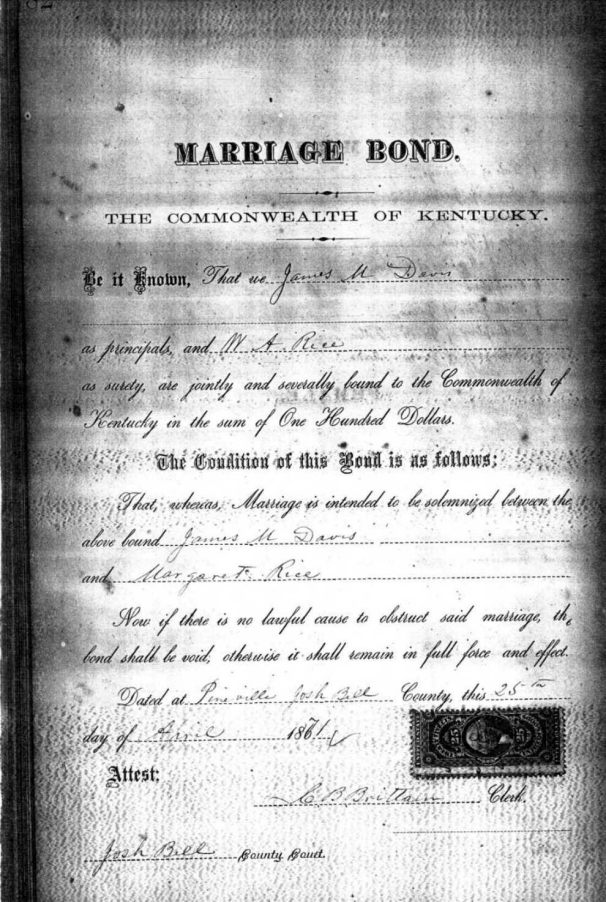 MARRIAGE BOND.
THE COMMONWEALTH OF KENTUCKY.
Be it Known, That we James M Davis
as principals, and W A Rice
as surety, are jointly and severally bound to the Commonwealth of
Kentucky in the sum of One Hundred Dollars.
The Condition of this Bond is as follows;
That, whereas, Marriage is intended to be solemnized between the
above bound James M Davis
and Margaret Rice
Now if there is no lawful cause to obstruct said marriage, the
bond shall be void, otherwise it shall remain in full force and effect.
Dated at Pineville Josh Bell County, this 25th
day of April 1871
Attest;
Brittain Clerk.
Josh Bell County Court.
25